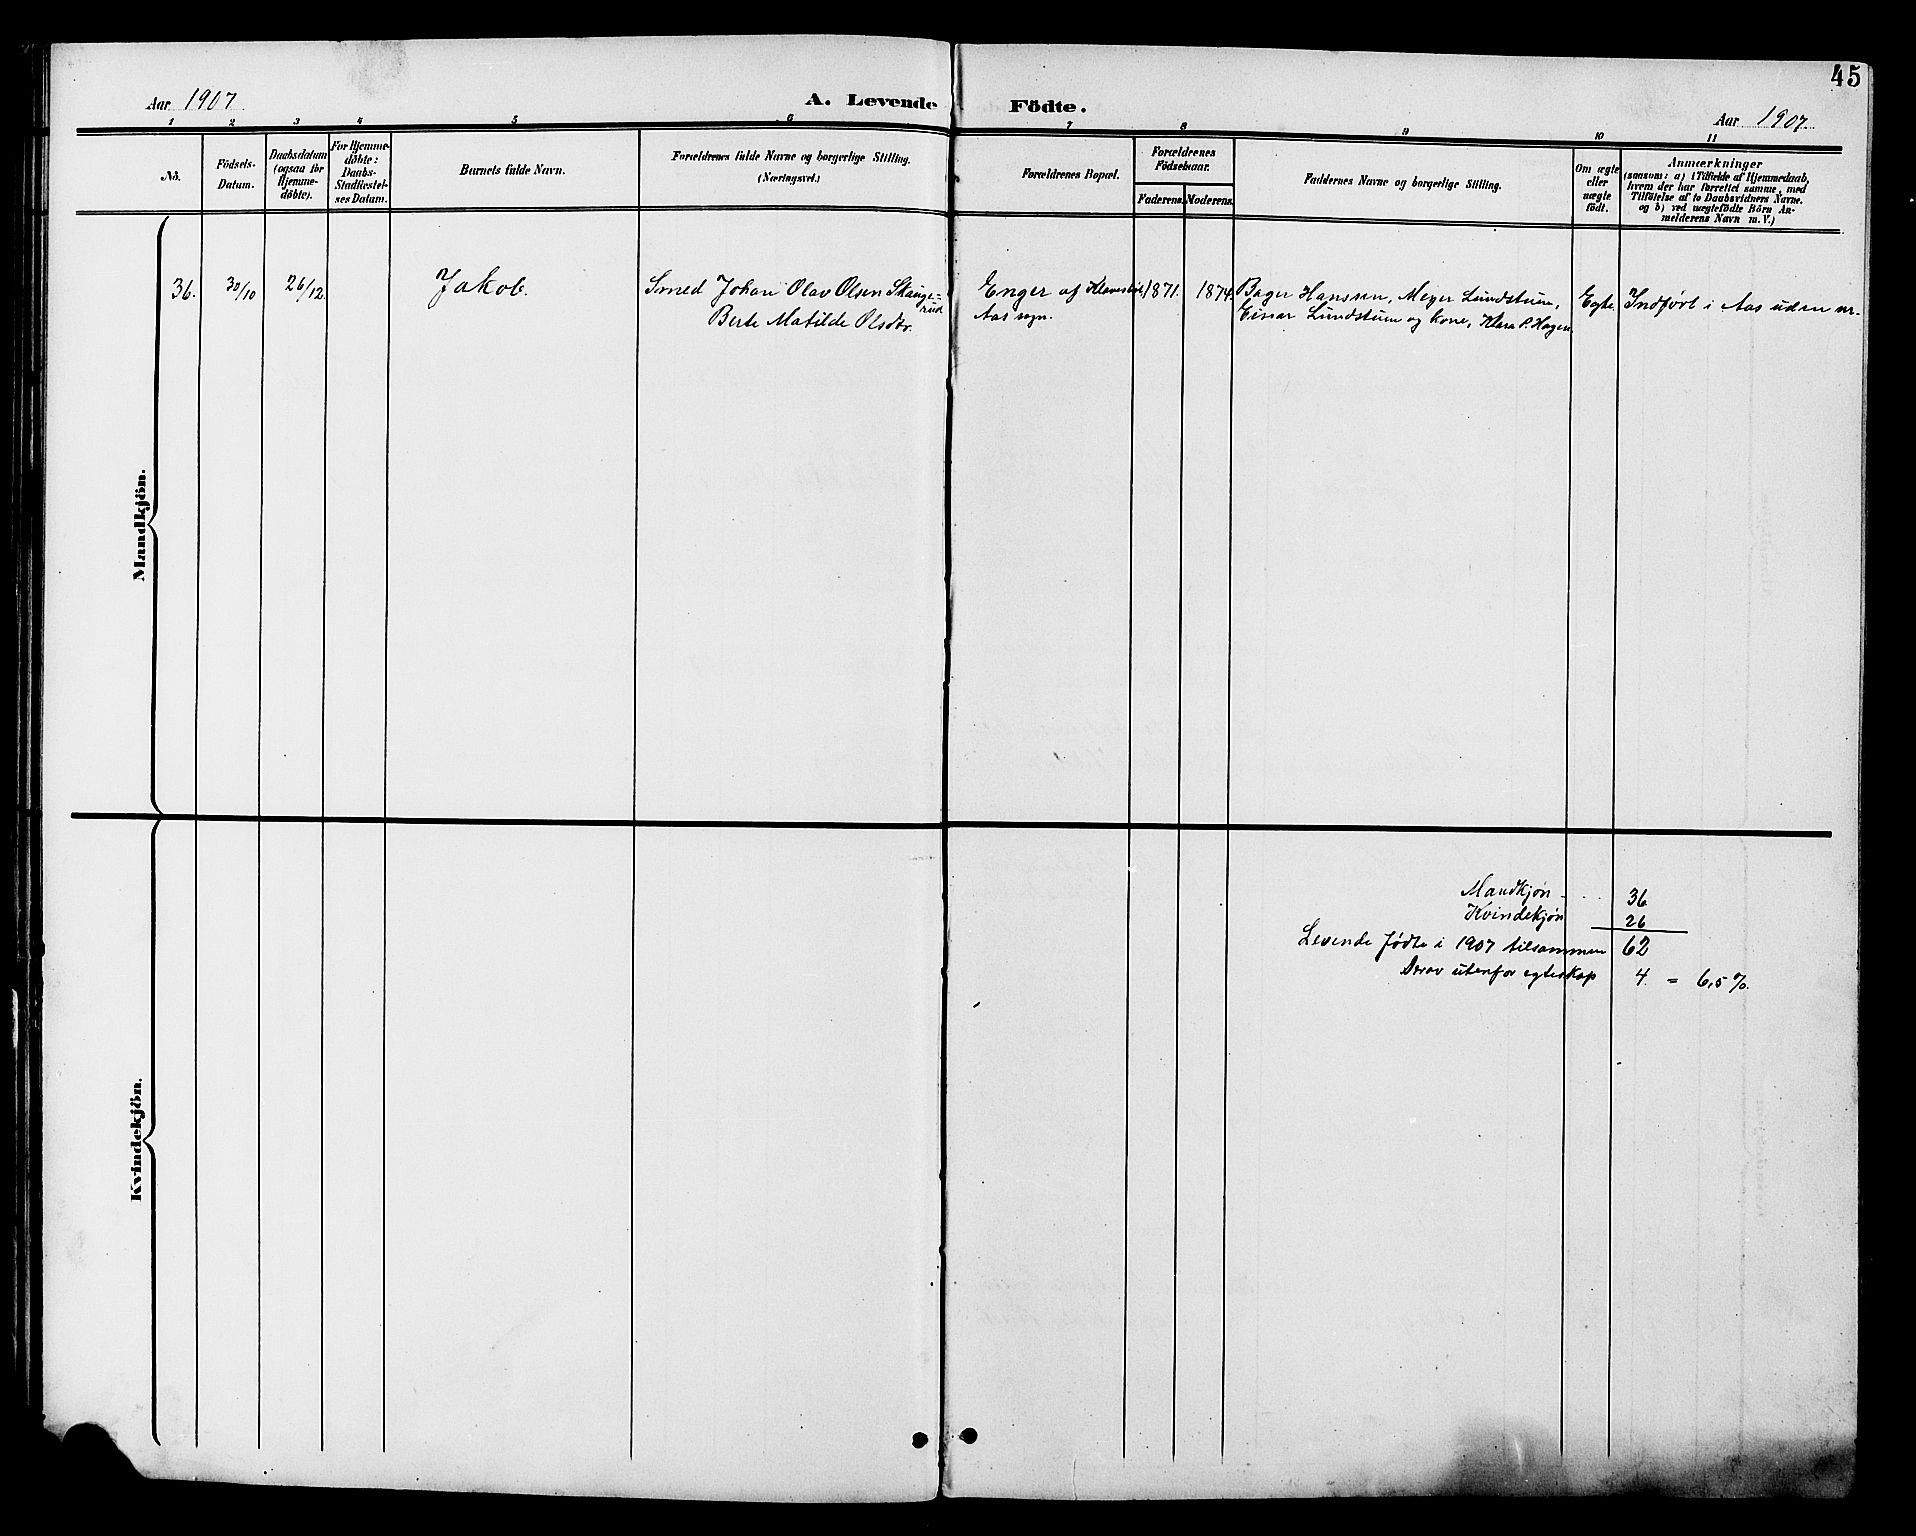 45
Aar 1907
A. Levende Födte.
Aar 1907.
1 2 3 4 5 6 7 8 9 10 11
No.
Födsels-Datum.
Daabsdatum (ogsaa for Hjemme-döbte).
For Hjemme-döbte: Daabs-Stadfæstel-ses Datum.
Barnets fulde Navn.
Forældrenes fulde Navne og borgerlige Stilling.
(Næringsvei.)
Forældrenes Bopæl.
Forældrenes Födselsaar.
Faderens. Moderens.
Faddernes Navne og borgerlige Stilling.
Om ægte eller uægte födt.
Anmærkninger
(saasom: a) i Tilfælde af Hjemmedaab,
hvem der har forrettet samme, med
Tilföielse af to Daabsvidners Navne.
og b) ved uægtefödte Börn An-
melderens Navn m. V.)
Mandkjön.
36. 30/10 26/12. Jakob. Smed Johan Olav Olsen Skauge=rud Enger af 1871. 1874. Bager Hanssen, Meyer Lundstuen, Egte. Indført i Aas uden nr.
Berte Matilde Olsdtr. Aas sogn. Einar Lundstuen og kone, Klara P. Hagen.
Kvindekjön.
Mandkjøn 36
Kvindekjøn 26
Levende fødte i 1907 tilsammen 62
Derav utenfor egteskap 4 = 6,5%.